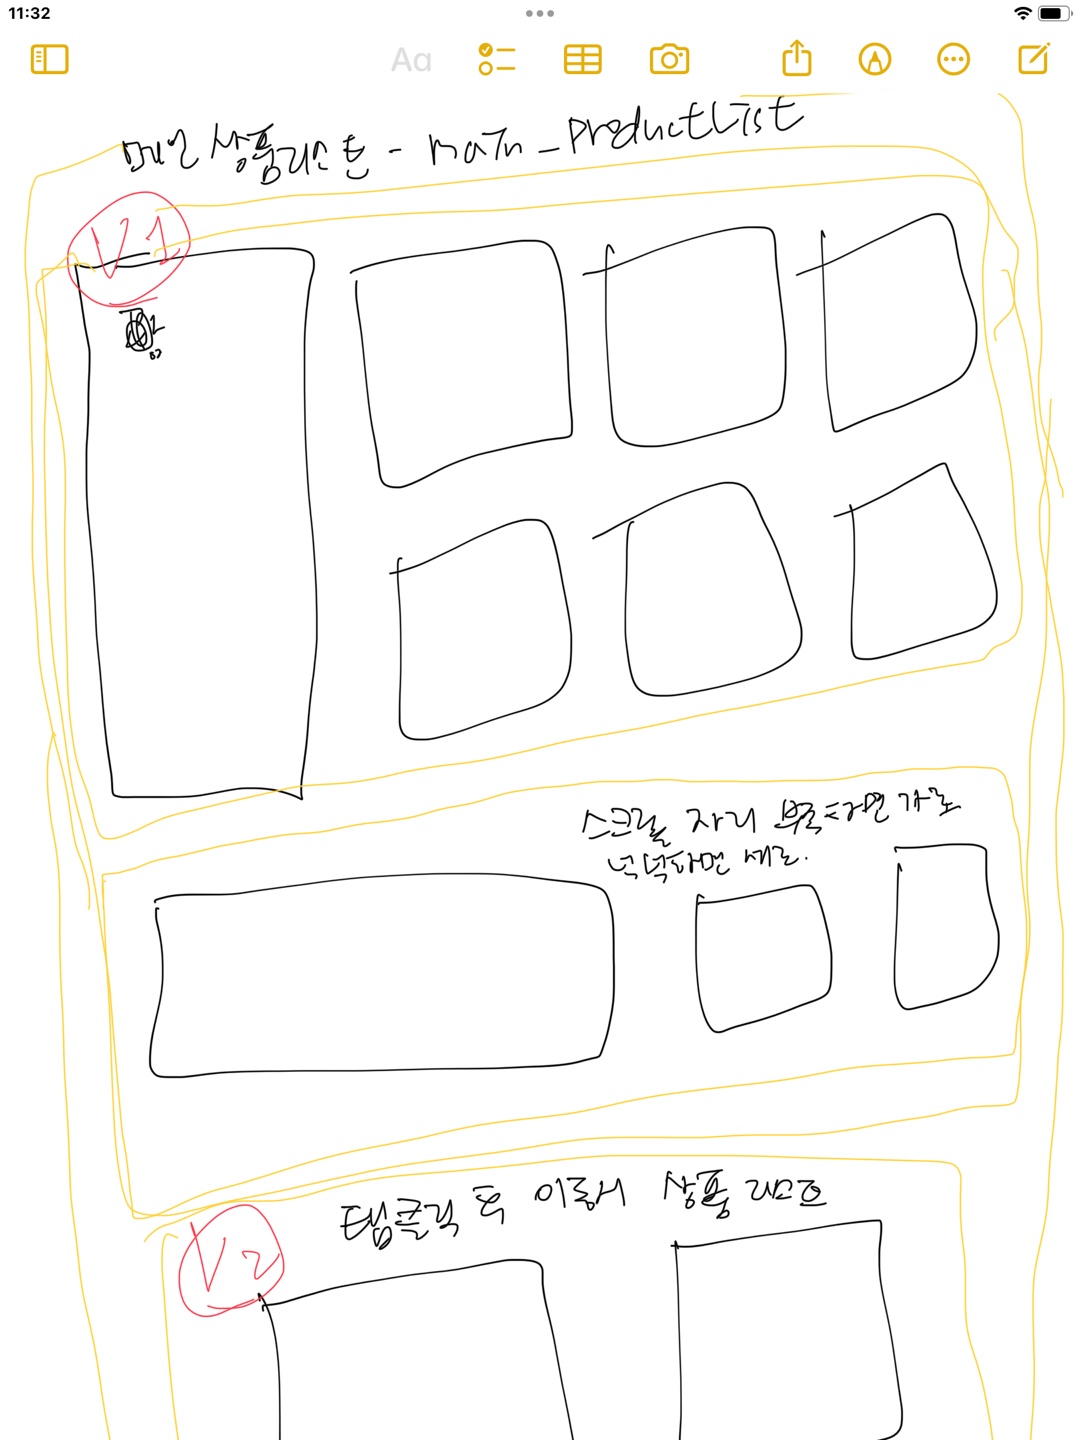 11:32
Aa
메인 상품리스트 - main_productList
V1
스크롤 자리 부족하면 가로
넉넉하면 세로.
탭클릭 후 이동시 상품 리스트
V2